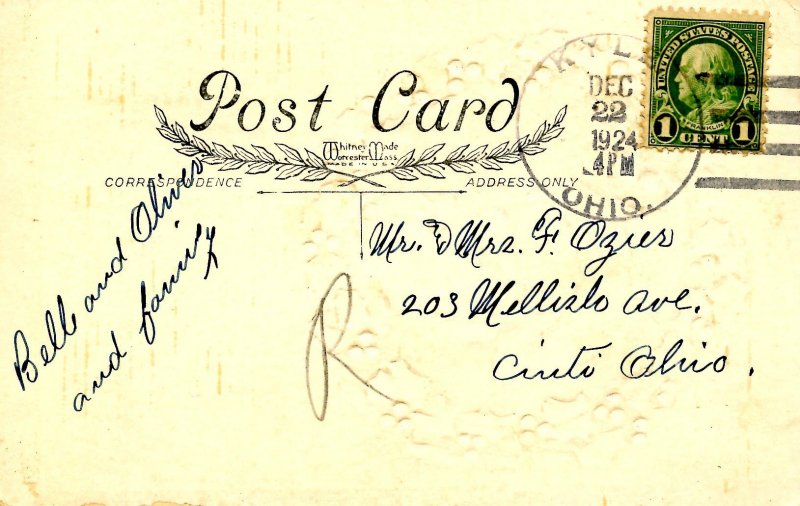 Post Card
Whitney Made
Worcester, Mass.
MADE IN U.S.A.
CORRESPONDENCE
ADDRESS ONLY
KYLE
DEC
22
1924
4PM
OHIO.
UNITED STATES POSTAGE
FRANKLIN
1 CENT 1
Belle and Oliver
and family
R
Mr. & Mrs. F. Ozier
203 Ave.
Cinti Ohio.